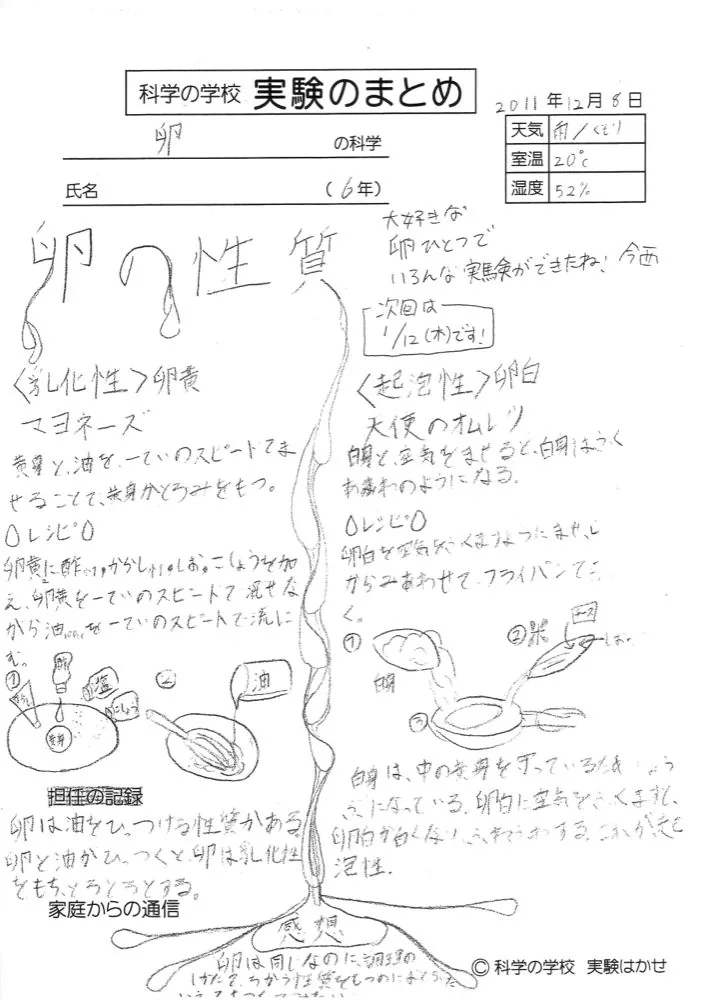 科学の学校 実験のまとめ
2011年12月8日
卵の科学
天気 雨/くもり
室温 20℃
湿度 52%
氏名 (6年)
卵の性質
大好きな
卵ひとつで
いろんな実験ができたね!
次回は
1/12(木)です!
〈乳化性〉卵黄
マヨネーズ
黄身と、油を、一ていのスピードでま
ぜることで、黄身がとろみをもつ。
レシピ
卵黄に酢 からし しお こしょうを加
え、卵黄を一ていのスピードで混ぜな
がら油 を一ていのスピードで流しこ
む。
① 酢 塩 こしょう からし 黄身
② 油
担任の記録
卵は油をひっつける性質がある。
卵と油がひっつくと、卵は乳化性
をもち、とろとろとする。
家庭からの通信
〈起泡性〉卵白
天使のオムレツ
白身と、空気をまぜると、白身は
あわのようになる。
レシピ
卵白を空気をふくますようにまぜ、
からみあわせて、フライパンで
く。
① 白身
② チーズ しお
③
白身は、中の黄身を守っているため
になっている。卵白に空気をふくますと、
卵白が白くなり、する。これが起
泡性。
感想
卵は同じなのに、調理の
しかたで、ちがう性質をもつのに
© 科学の学校 実験はかせ